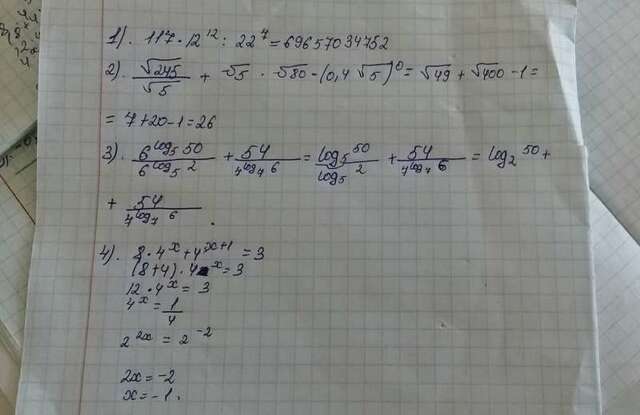 1). 117 · 12^12 : 22^7 = 69657034752
2). √245/√5 + √5 · √80 - (0,4 √5)^0 = √49 + √400 - 1 =
= 7 + 20 - 1 = 26
3). 6^log₅50/6^log₅2 + 54/7^log₇6 = log₅50/log₅2 + 54/7^log₇6 = log₂50 +
+ 54/7^log₇6 .
4). 8 · 4^x + 4^x+1 = 3
(8+4) · 4^x = 3
12 · 4^x = 3
4^x = 1/4
2^2x = 2^-2
2x = -2
x = -1.